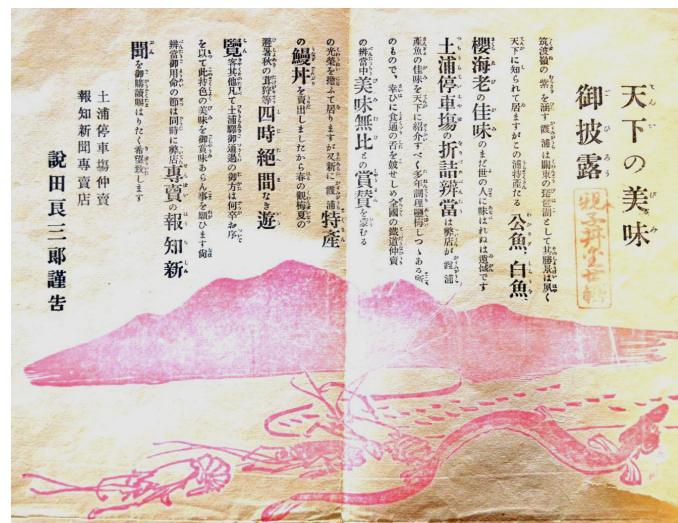 天下の美味
御披露
筑波嶺の紫を浸す霞ヶ浦は關東の琵琶湖として其勝景は夙く
天下に知られて居ますがこの浦特産たる公魚、白魚、
櫻海老の佳味のまだ世の人に味はれぬは遺憾です
土浦停車塲の折詰辨當は弊店が霞ヶ浦
產魚の佳味を天下に紹介すべく多年調理鹽梅しつゝある所
のもので、幸ひに食通の舌を皷せしめ全國の鐵道仲賣
の辨當中美味無比との賞賛を辱ふする
の光榮を擔ふて居りますが又新に霞ヶ浦特產
の鰻丼を賣出しましたから春の觀梅夏の
避暑秋の茸狩等四時絕間なき遊
覽客其他凡て土浦驛御通過の御方は何卒お序
を以て此特色の美味を御賞味あらん事を願ひます尙
辨當御用命の節は同時に弊店專賣の報知新
聞を御購讀賜はりたく希望致します
土浦停車塲仲賣
報知新聞專賣店
說田良三郎謹吿